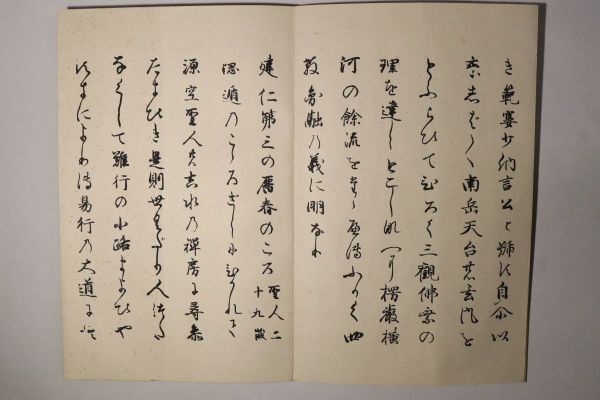 き範宴少納言公と號す自尒以
来しは〱南岳天台の玄風を
とふらひてひろく三觀佛乗の
理を達しとこしなへに楞嚴横
河の餘流をたゝへてふかく四
教圓融の義に明なり
建仁第三の暦春のころ聖人二
十九歳
隠遁のこゝろさしにひかれて
源空聖人の吉水の禪房に尋参
たまひき是則世くたり人つた
なくして難行の小路まよひや
すきによりて易行の大道に